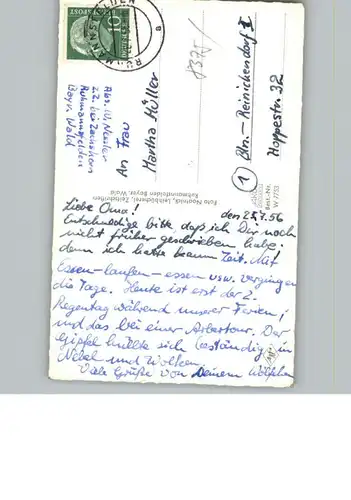 DEUTSCHE BUNDESPOST
10
RUHMANNSFELDEN
a
Abs. W.
z. Z. bei Zachskorn
Ruhmannsfelden
Bayr. Wald
An Frau
Martha Müller
1 Bln.–Reinickendorf
Hoppestr. 32
Ruhmannsfelden Bayer. Wald
Best.-Nr. W 7733
Liebe Oma! den 25.7.56
Entschuldige bitte, daß ich Dir noch
nicht früher geschrieben habe,
denn ich hatte kaum Zeit. Mit
Essen-laufen-essen usw. vergingen
die Tage. Heute ist erst der 2.
Regentag während unserer Ferien,
und das bei einer Arbertour. Der
Gipfel hüllte sich beständig in
Nebel und Wolken.
Viele Grüße von Deinem Wölfchen